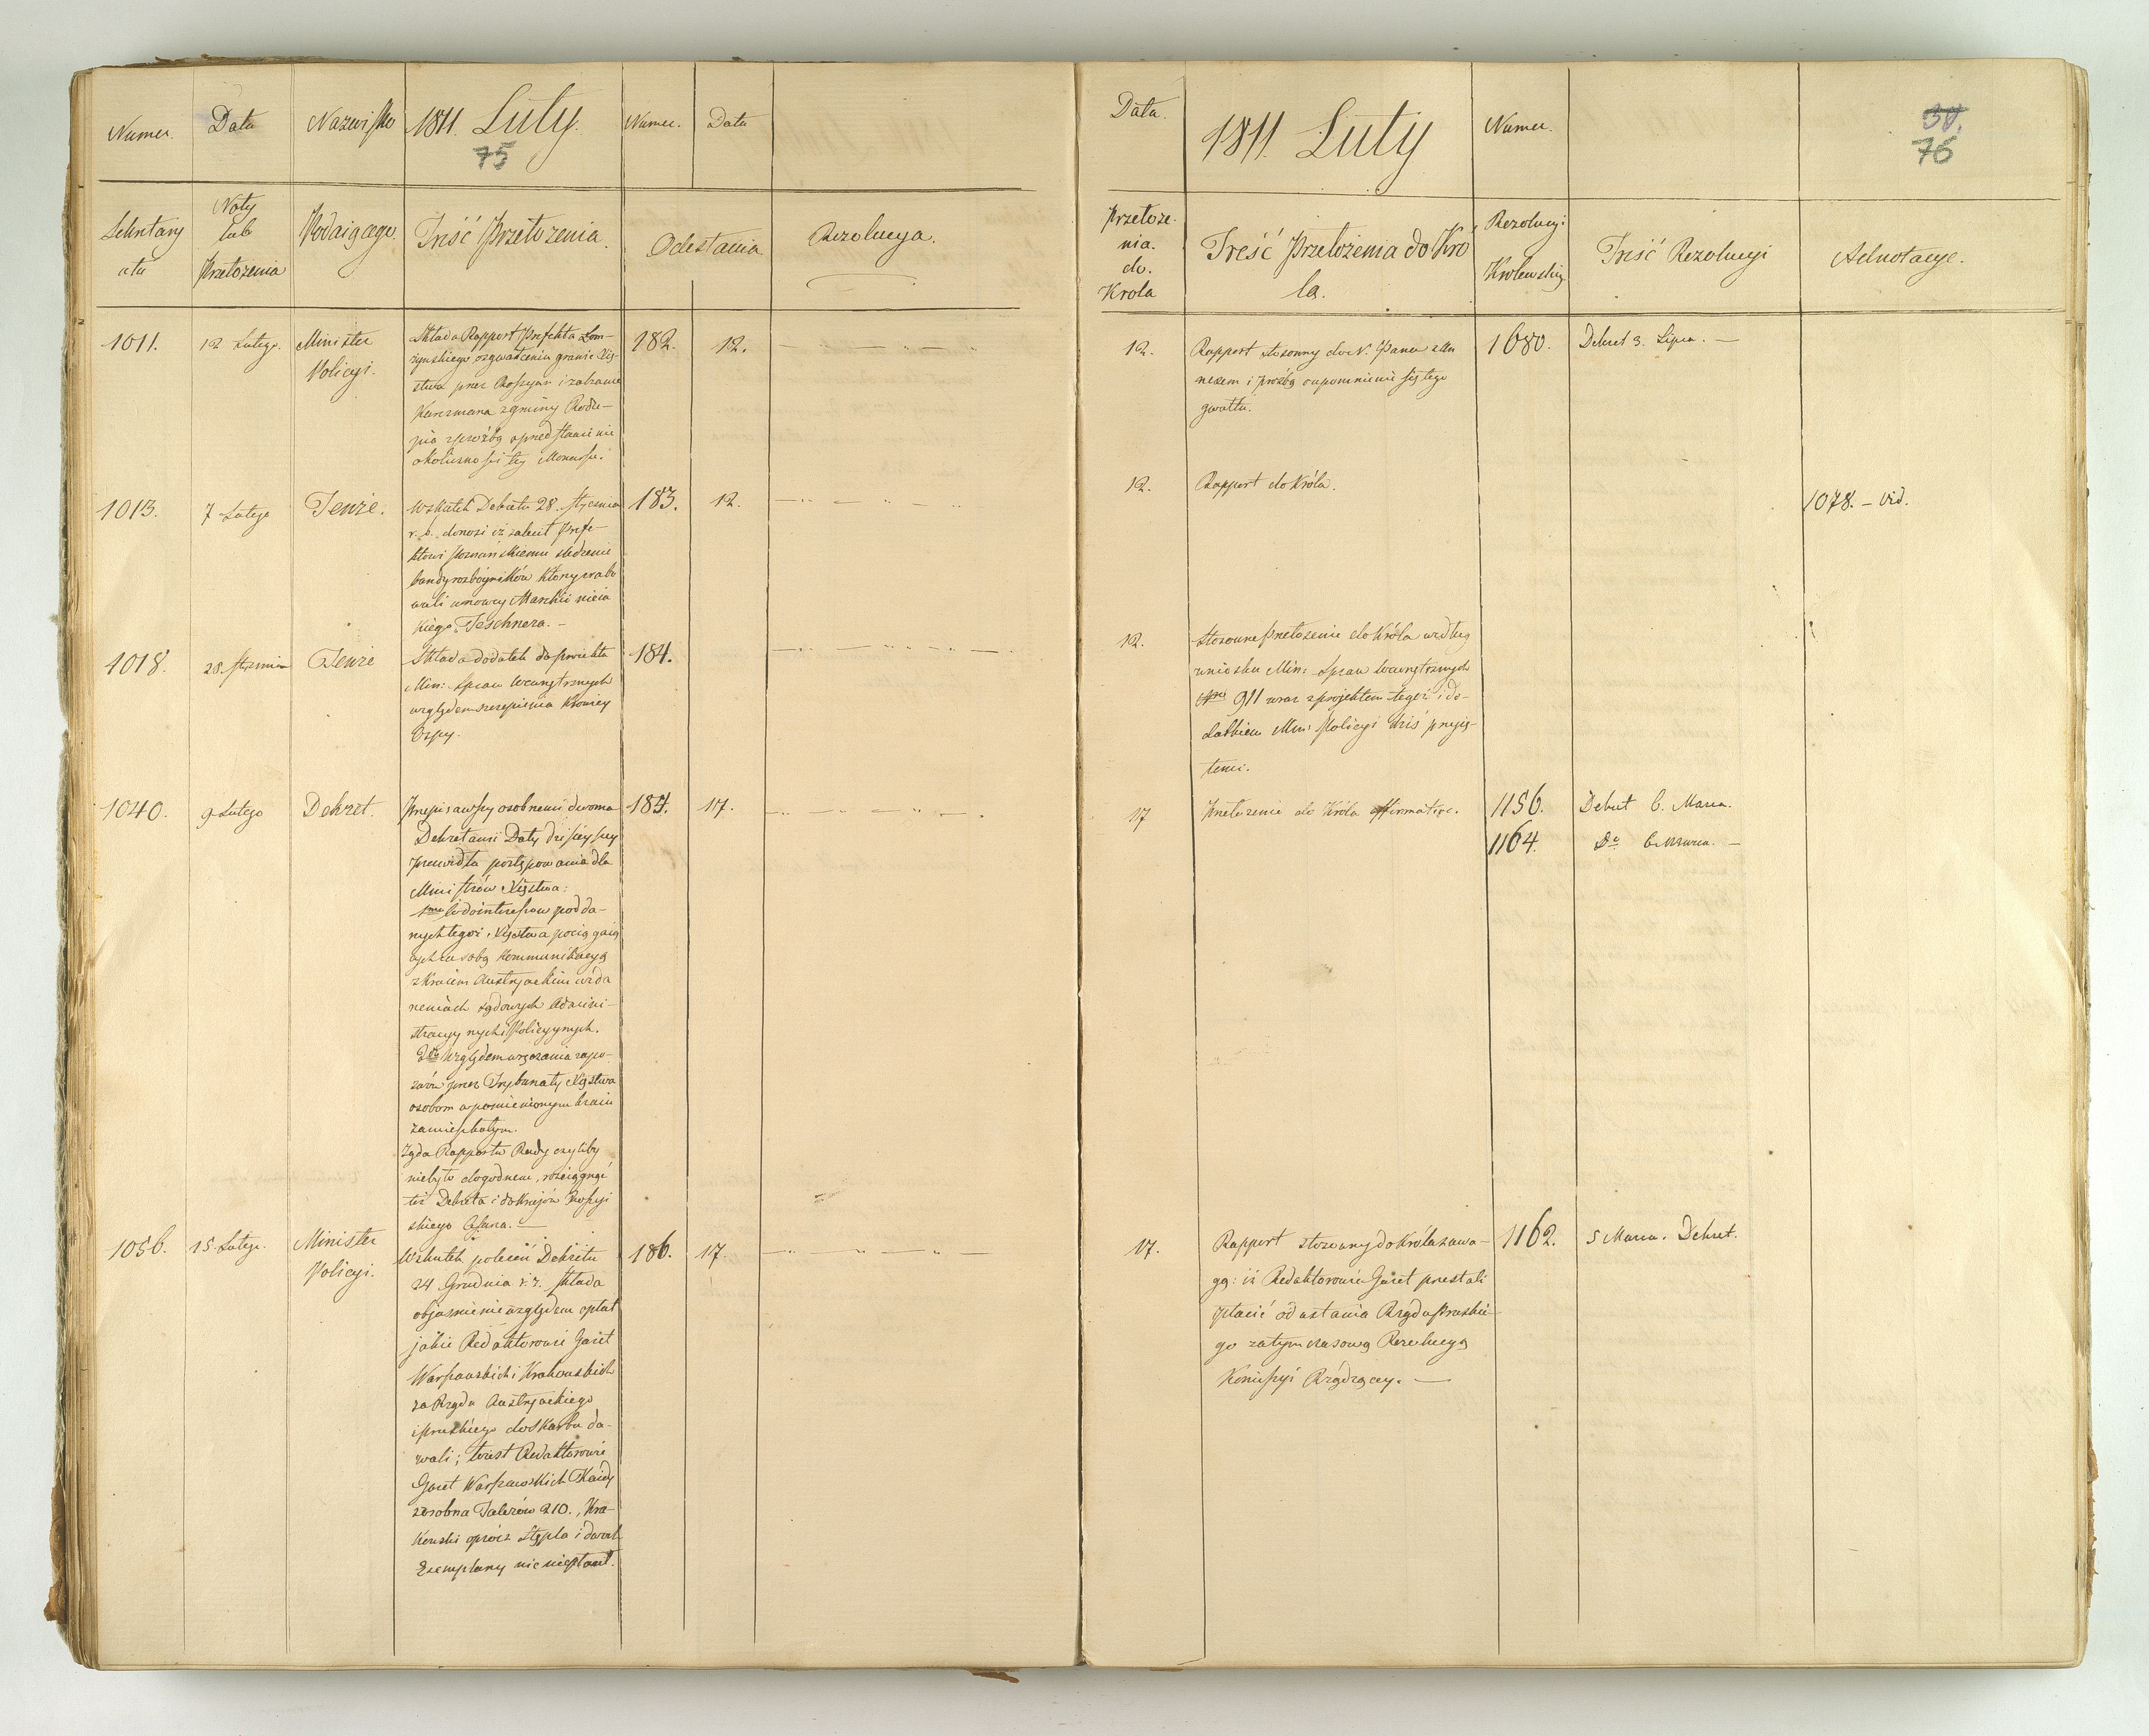 Numer.
Data
Nazwisko
1811. Luty.
75
Numer.
Data
Noty
lub
Przełożenia
Podaiącego.
Treść Przełożenia.
Odesłania
Rezolucya.
1011.
12 Lutego.
Minister
Policyi.
Składa Rapport Prefekta Łom-
żyńskiego o zgwałceniu granic Xię-
stwa przez Rossyan i zabranie
Karczmarza z gminy
z prośbą o przedstawienie
okoliczności tey Monarsze.
182.
12.
1013.
7 Lutego
Tenże.
Wskutek Dekretu 28. stycznia
r. b. donosi iż zalecił Prefe-
ktowi Poznańskiemu śledzenie
bandy rozbóyników którzy zrabo
wali w nowey Marchii nieia
kiego Teschnera. –
183.
12.
1018.
28. stycznia
Tenże
Składa dodatek do proiektu
Min: Spraw Wewnętrznych
względem szczepienia krowiey
Ospy.
184.
1040.
9 Lutego
Dekret.
Przepisawszy osobnemi dwoma
Dekretami Daty dzisieyszey
prawidła postępowania dla
Ministrów Xięstwa:
1mo Co do interessow podda-
nych tegoż Xięstwa pociągaią
cych za sobą kommunikacyą
z Kraiem Austryackim w zda
rzeniach sądowych Admini-
stracyynych i Policyynych.
2do Względem wręczania zapo-
zwów przez Trybunały Xięstwa
osobom w pomienionym kraiu
zamieszkałym.
Żąda Rapportu Rady czyliby
niebyło dogodnem, rosciągnąć
też Dekreta i do Krajów Rossyi
skiego Cesarza. —
185.
17.
1056.
15. Lutego.
Minister
Policyi.
Wskutek poleceń Dekretu
24 Grudnia r. z. składa
objaśnienie względem opłat
jakie Redaktorowie Gazet
Warszawskich i Krakowskich
za Rządu Austryackiego
i pruskiego do Skarbu da-
wali; teraz Redaktorowie
Gazet Warszawskich Każdy
zosobna Talarów 210., Kra-
kowski oprócz Stępla i dwóch
Exemplarzy nic niepłacił.
186.
17.
Data.
1811. Luty
Numer.
38.
76
Przełoże-
nia.
do.
Krola
Treść Przełożenia do Kró
la.
Rezolucyi
Krolewskiey
Treść Rezolucyi
Adnotacye.
12.
Rapport stosowny do N. Pana z An
nexem i prośbą o upomnienie się tego
gwałtu.
1680.
Dekret 3. Lipca. —
12.
Rapport do Króla.
1078. – vid.
12.
Stosowne przełożenie do Króla według
wniosku Min: Spraw Wewnętrznych
911 wraz z projektem tegoż i do-
datkiem Min: Policyi dziś przyię-
temi.
17
Przełożenie do Króla affirmative.
1156.
Dekret 6. Marca.
1164.
Do 6. Marca. —
17.
Rapport stosowny do Króla z uwa-
gą: iż Redaktorowie Gazet przestali
płacić od ustania Rządu Pruskie-
go za tymczasową Rezolucyą
Komissyi Rządzącey. —
1162.
5 Marca. Dekret.